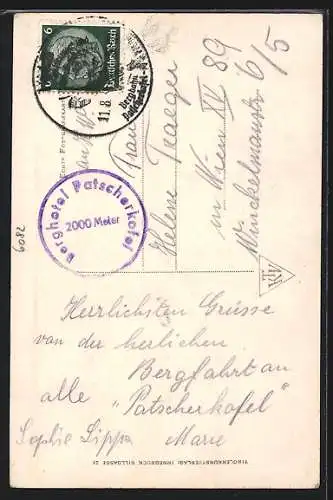 6
Deutsches Reich
11.8.
Berghotel Patscherkofel
2000 Meter
Echte Photographie
Frau
Helene Traeger
in Wien XV 89
Winckelmannstr 6/5
TKV
6082
Herrlichsten Grüsse
von der herlichen
Bergfahrt an
alle "Patscherkofel"
Sophie Lippa Marie
TIROLERKUNSTVERLAG INNSBRUCK SILLGASSE 21